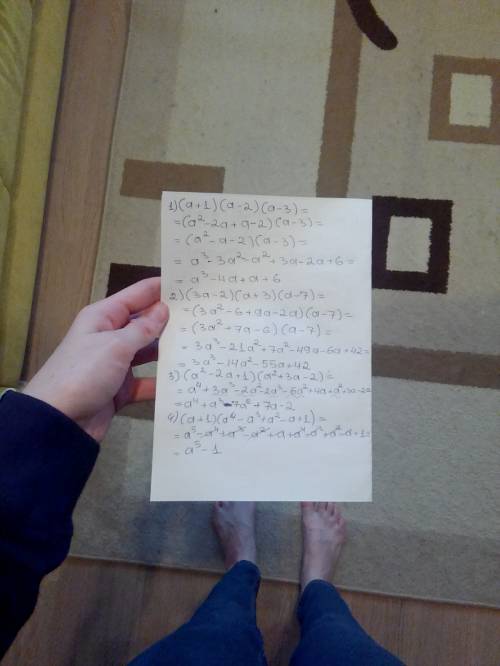 1) (a+1)(a-2)(a-3)=
=(a²-2a+a-2)(a-3)=
=(a²-a-2)(a-3)=
=a³-3a²-a²+3a-2a+6=
=a³-4a+a+6
2)(3a-2)(a+3)(a-7)=
=(3a²-6+9a-2a)(a-7)=
=(3a²+7a-6)(a-7)=
=3a³-21a²+7a²-49a-6a+42=
=3a³-14a²-55a+42
3)(a²-2a+1)(a²+3a-2)=
=a⁴+3a³-2a²-2a³-6a²+4a+a²+3a-2=
=a⁴+a³-7a²+7a-2
4)(a+1)(a⁴-a³+a²-a+1)=
=a⁵-a⁴+a³-a²+a+a⁴-a³+a²-a+1=
=a⁵-1